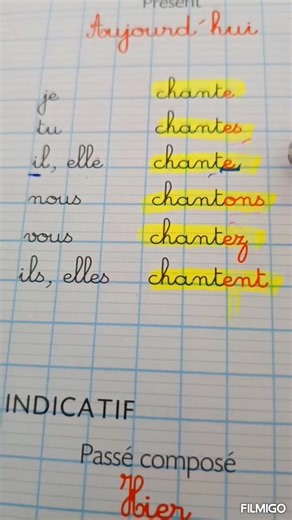 Présent
Aujourd'hui
je chante
tu chantes
il, elle chante
nous chantons
vous chantez
ils, elles chantent
INDICATIF
Passé composé
Hier
FILMIGO